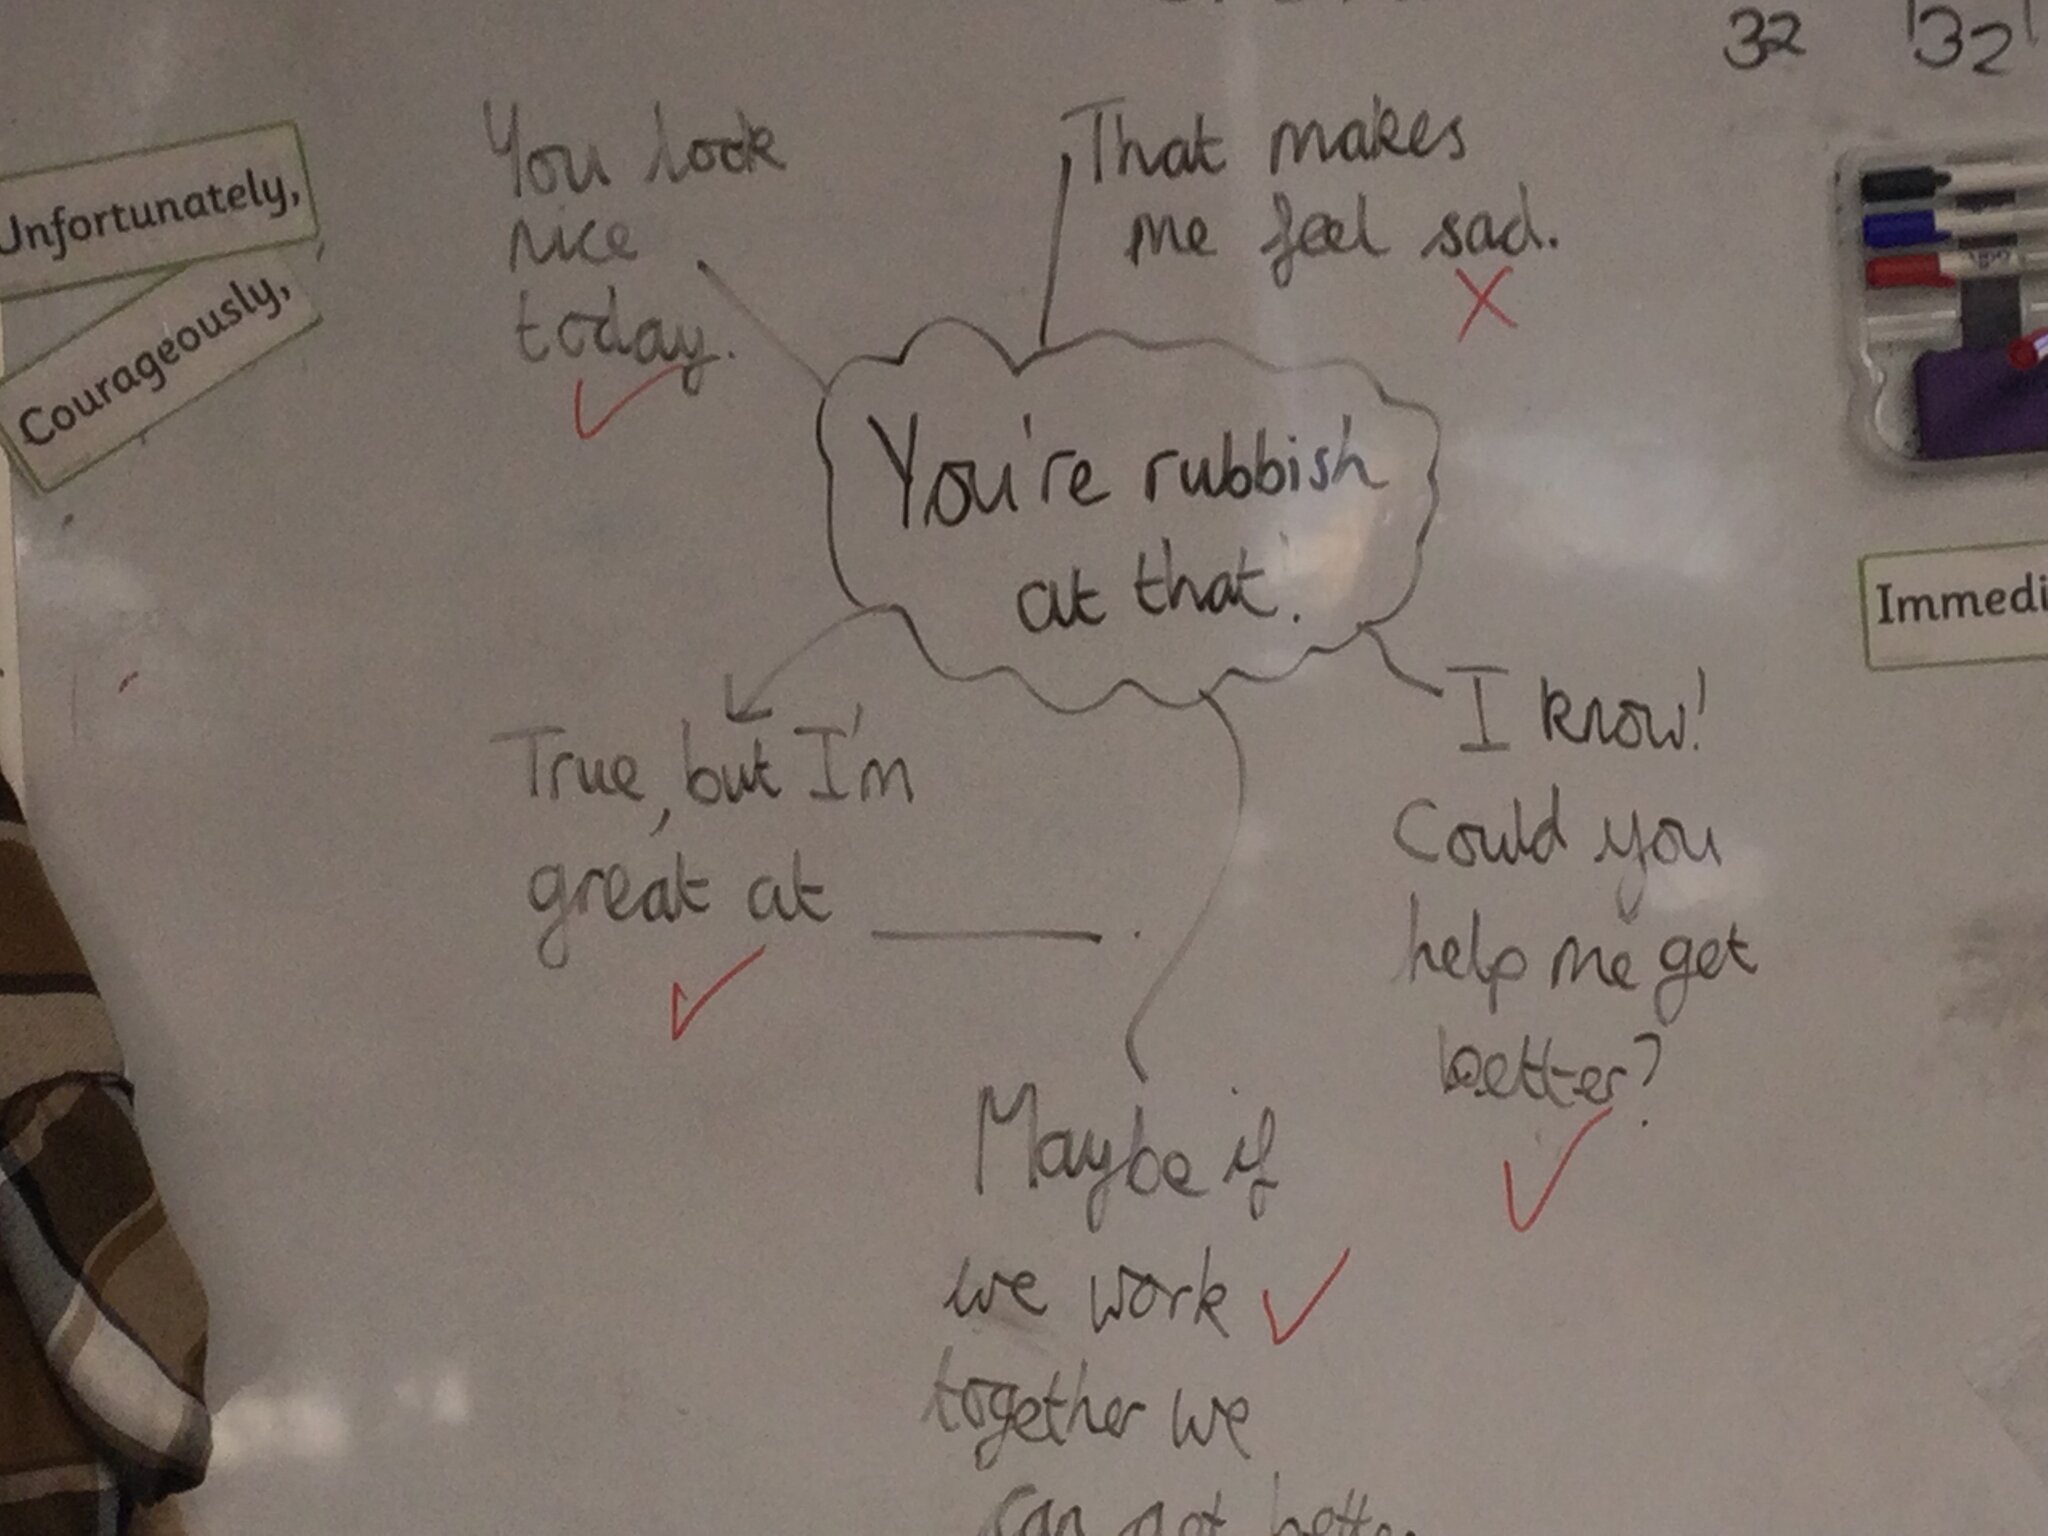 32 132
Unfortunately,
Courageously,
You look
nice
today.
That makes
me feel sad.
You're rubbish
at that!
Immedi
True, but I'm
great at ______.
I know!
Could you
help me get
better?
Maybe if
we work
together we
can get better